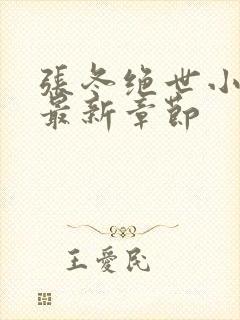 張冬绝世小
最新章節
王愛民